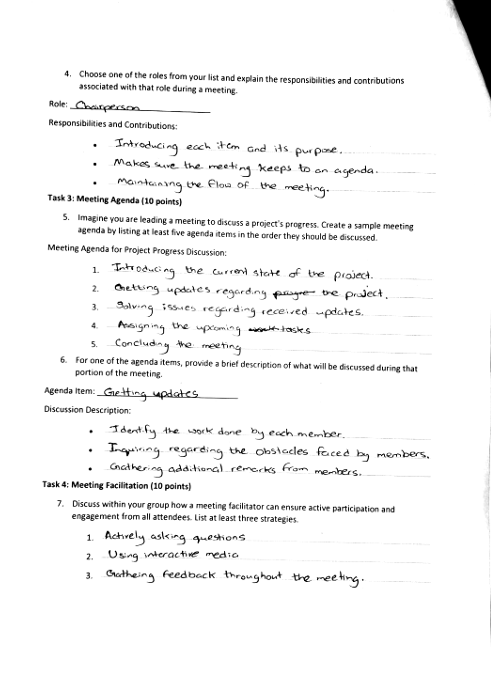 4. Choose one of the roles from your list and explain the responsibilities and contributions
associated with that role during a meeting.
Role: Chairperson
Responsibilities and Contributions:
• Introducing each item and its purpose.
• Makes sure the meeting keeps to an agenda.
• Maintaining the flow of the meeting.
Task 3: Meeting Agenda (10 points)
5. Imagine you are leading a meeting to discuss a project's progress. Create a sample meeting
agenda by listing at least five agenda items in the order they should be discussed.
Meeting Agenda for Project Progress Discussion:
1. Introducing the current state of the project.
2. Getting updates regarding the project.
3. Solving issues regarding received updates.
4. Assigning the upcoming tasks
5. Concluding the meeting
6. For one of the agenda items, provide a brief description of what will be discussed during that
portion of the meeting.
Agenda Item: Getting updates
Discussion Description:
• Identify the work done by each member.
• Inquiring regarding the obstacles faced by members.
• Gathering additional remarks from members.
Task 4: Meeting Facilitation (10 points)
7. Discuss within your group how a meeting facilitator can ensure active participation and
engagement from all attendees. List at least three strategies.
1. Actively asking questions
2. Using interactive media
3. Gatheing feedback throughout the meeting.